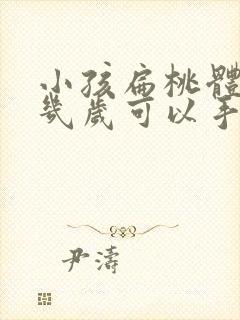 小孩扁桃體
幾歲可以手
尹濤